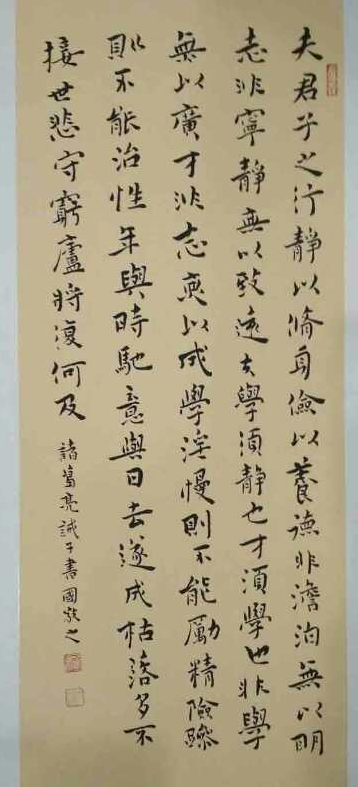 夫君子之行靜以脩身儉以養德非澹泊無以明
志非寧靜無以致遠夫學須靜也才須學也非學
無以廣才非志無以成學淫慢則不能勵精險躁
則不能治性年與時馳意與日去遂成枯落多不
接世悲守窮廬將復何及
諸葛亮誡子書國敬之